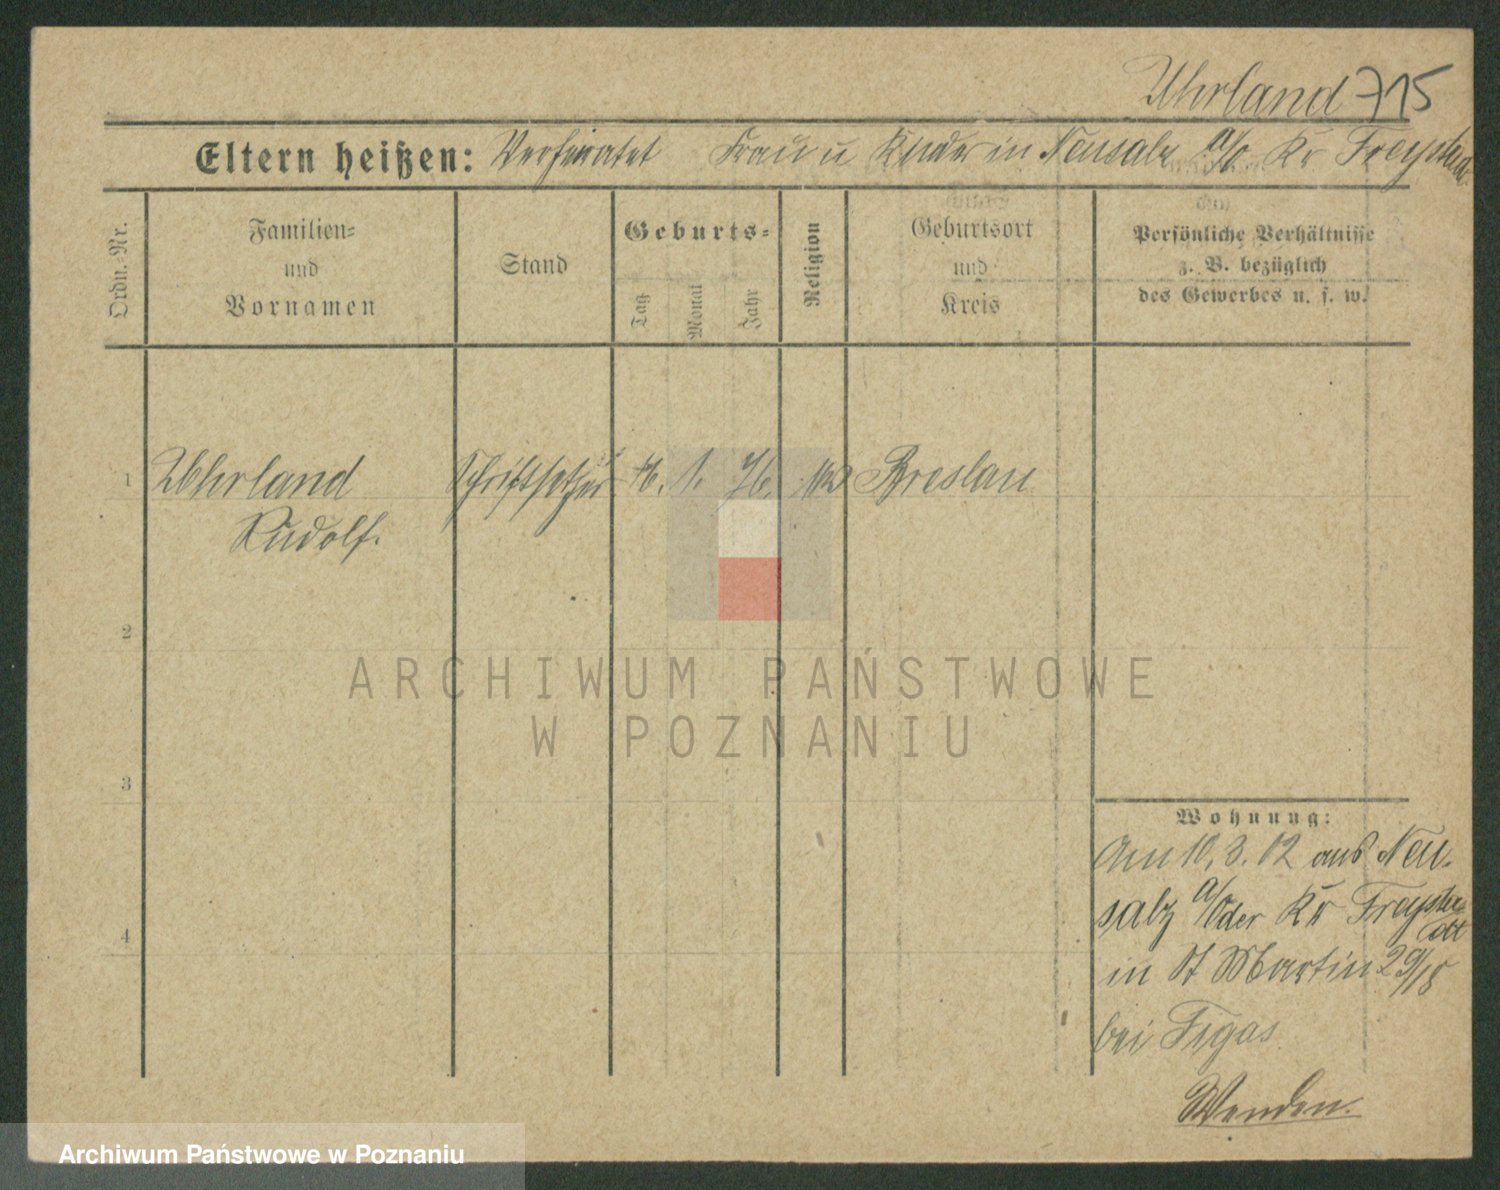 Uhrland 715
Eltern heißen: Verheiratet Frau u Kinder in Neusalz a/o Kr Freystadt
Ordn. Nr.
Familien-
und
Vornamen
Stand
Geburts-
Tag
Monat
Jahr
Religion
Geburtsort
und
Kreis
Persönliche Verhältnisse
z. B. bezüglich
des Gewerbes u. s. w.
1 Uhrland Schriftsetzer 1. 76. Breslau
Rudolf.
2
3
4
Wohnung:
Am 10.3.02 aus Neu-
salz a/Oder Kr Freysta
dt
in St Martin 29/18
bei Figas
Wenden.
ARCHIWUM PAŃSTWOWE
W POZNANIU
Archiwum Państwowe w Poznaniu